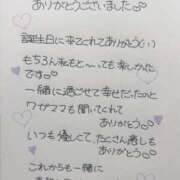 ありがとうございました
誕生日に来てくれてありがとう
もちろん私もと〜っても楽しかった
です
一緒に過ごせて幸せだったのと
ワガママも聞いてくれて
ありがとう
いつも優しくて、たくさん感じも
ありがとう
これからも一緒に